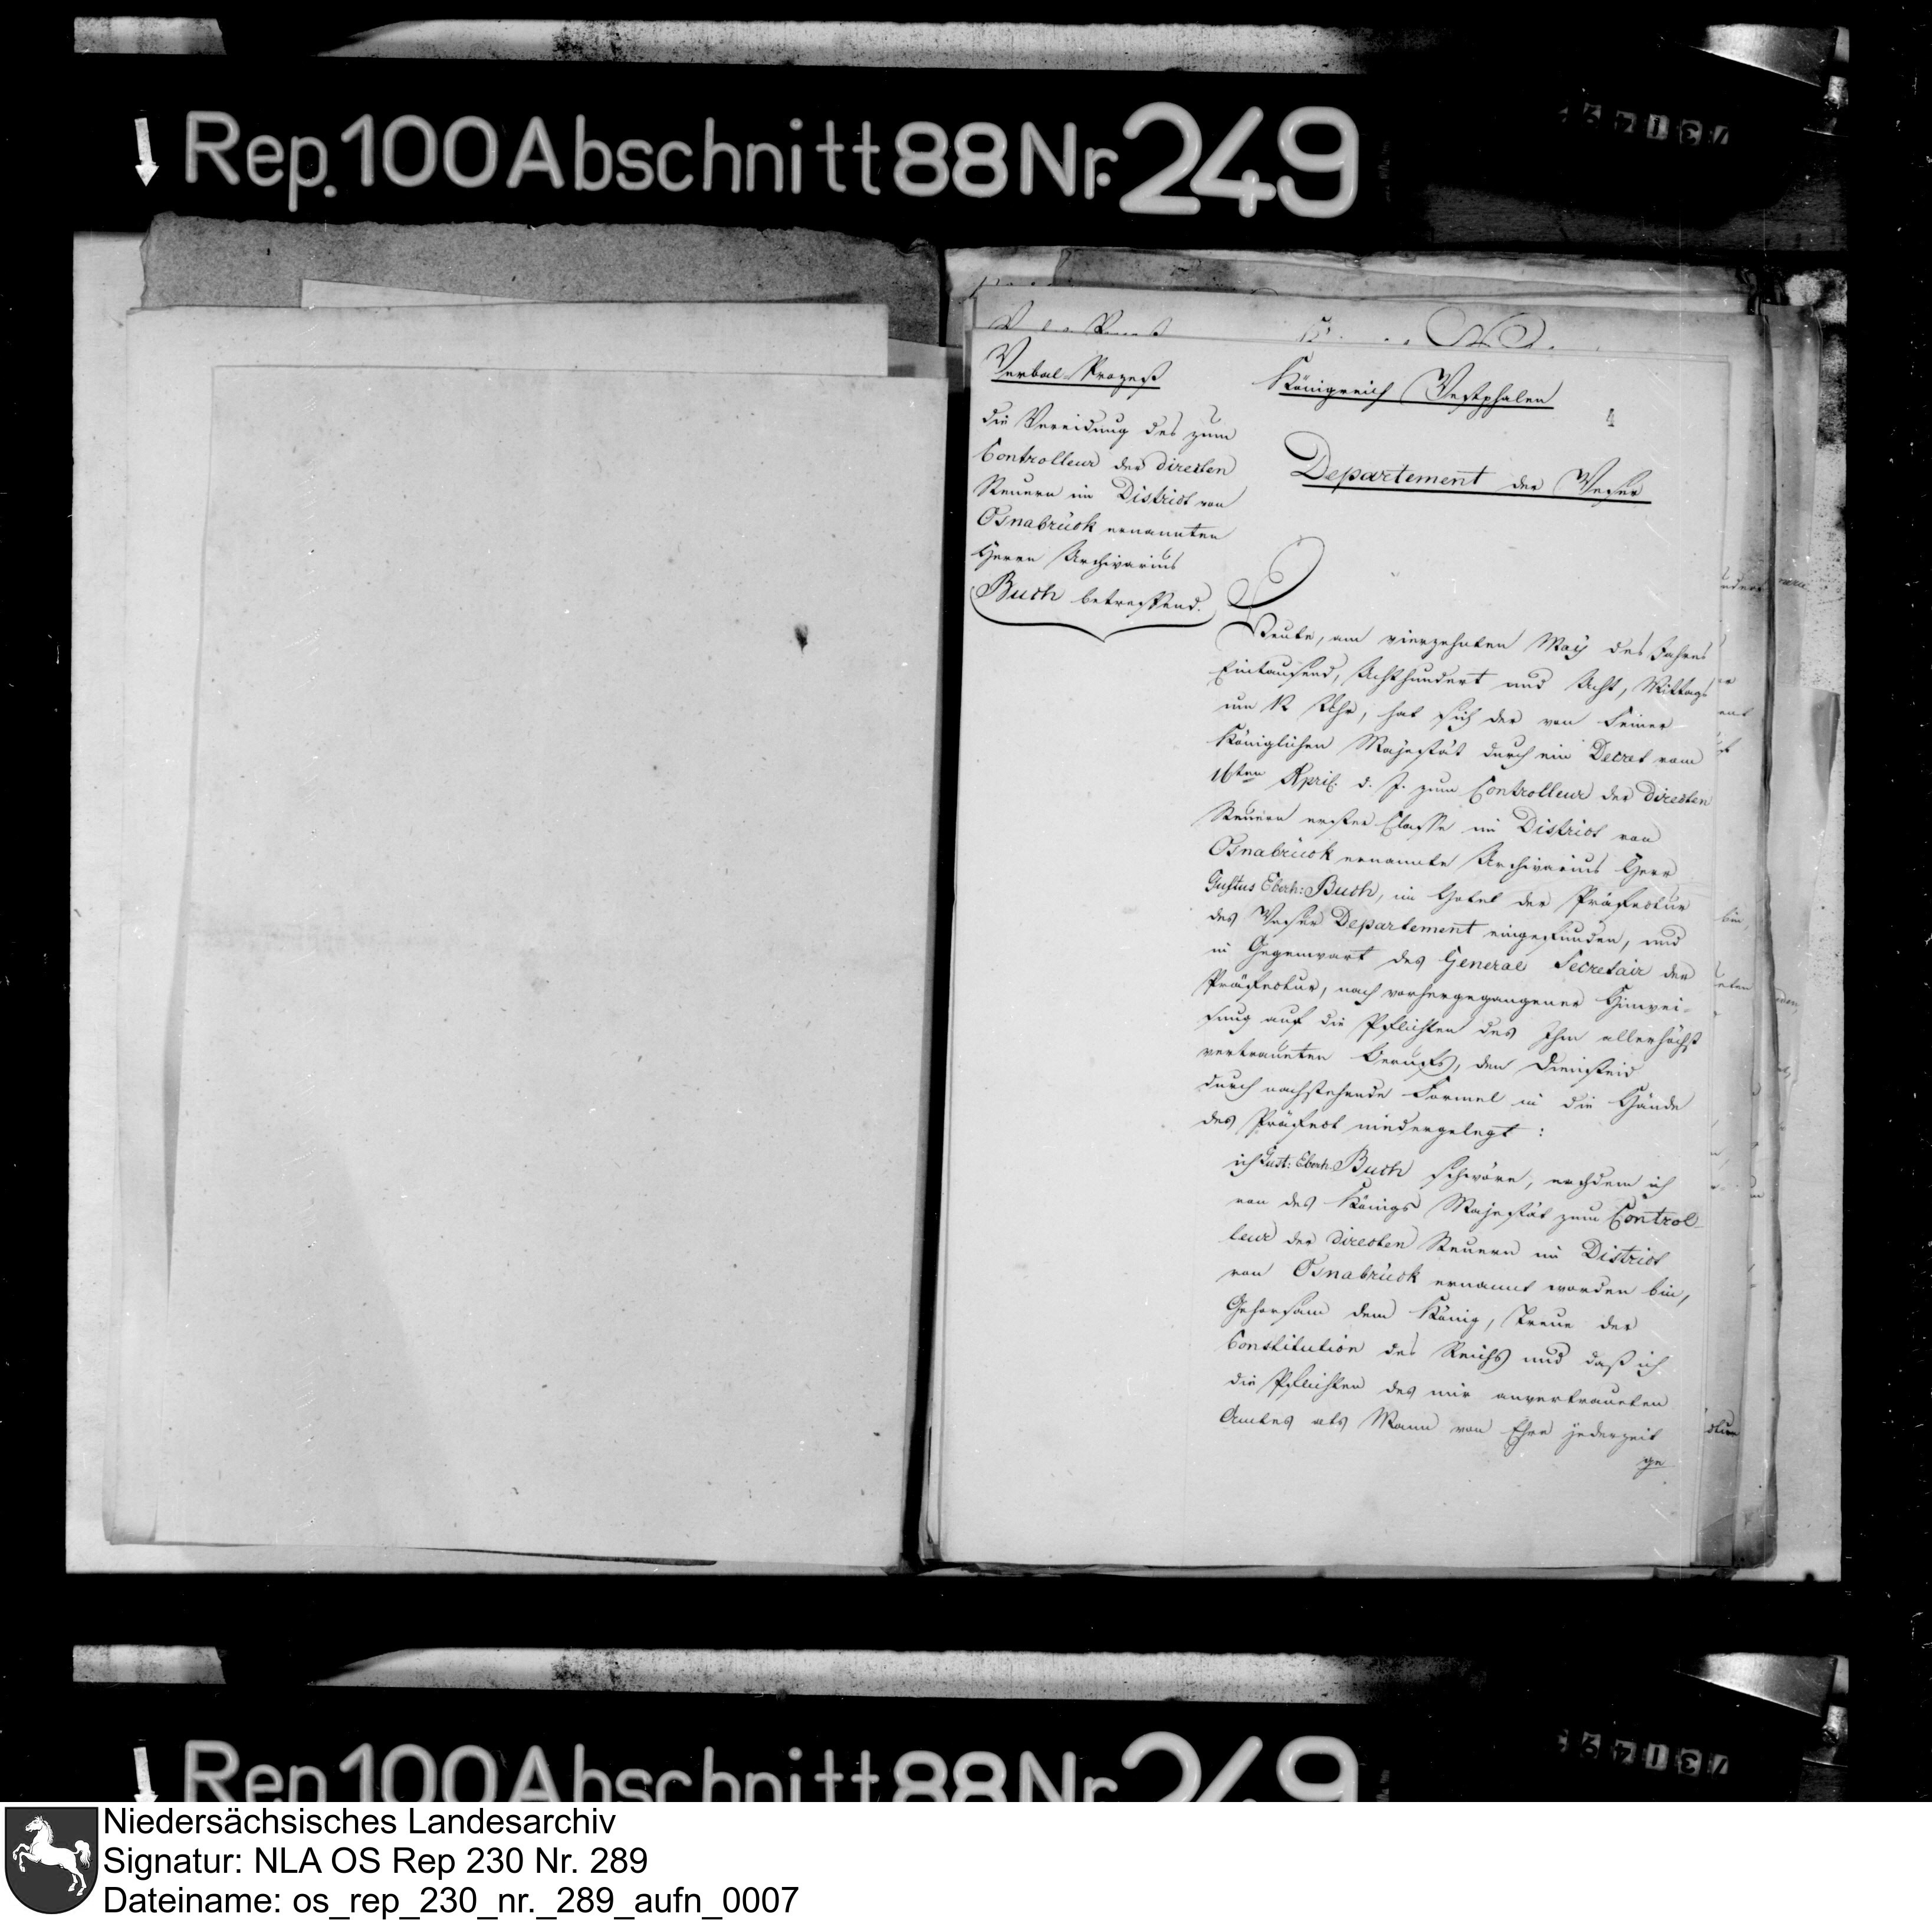 Rep. 100 Abschnitt 88 Nr. 249
Verbal-Prozeß
die Vereidung des zum
Controlleur der directen
Steuern im District von
Osnabrück ernannten
Herrn Archivarius
Buch betreffend.
Königreich Westphalen
4
Departement der Weser
Heute, am vierzehnten May des Jahres
Eintausend, Achthundert und Acht, Mittags
um 12 Uhr, hat sich der von Seiner
Königlichen Majestät durch ein Decret vom
16ten April d. J. zum Controlleur der directen
Steuern erster Classe im District von
Osnabrück ernannte Archivarius Herr
Justus Eberh: Buch, im Hotel der Präfectur
des Weser Departement eingefunden, und
in Gegenwart des General Secretair der
Präfectur, nach vorhergegangener Hinwei-
sung auf die Pflichten des Ihm allerhöchst
vertraueten Berufs, den Diensteid
durch nachstehende Formel in die Hände
des Präfect niedergelegt:
ich Just: Eberh. Buch schwöre, nachdem ich
von des Königs Majestät zum Control-
leur der directen Steuern im District
von Osnabrück ernannt worden bin,
Gehorsam dem König, Treue der
Constitution des Reichs und daß ich
die Pflichten des mir anvertraueten
Amtes als Mann von Ehre jederzeit
ge
Rep. 100 Abschnitt 88 Nr. 249
Niedersächsisches Landesarchiv
Signatur: NLA OS Rep 230 Nr. 289
Dateiname: os_rep_230_nr._289_aufn_0007